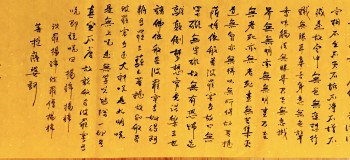 空相不生不滅不垢不淨不增不
減是故空中無色無受想行
識無眼耳鼻舌身意無色聲
香味觸法無眼界乃至無意識
界無無明亦無無明盡乃至
無老死亦無老死盡無苦集滅
道無智亦無得以無所得故菩提
薩埵依般若波羅蜜多故心無
罣礙無罣礙故無有恐怖遠
離顛倒夢想究竟涅槃三世
諸佛依般若波羅蜜多故得阿
耨多羅三藐三菩提故知般若
波羅蜜多是大神咒是大明咒
是無上咒是無等等咒能除一切苦
真實不虛故說般若波羅蜜多
咒即說咒曰揭諦揭諦
波羅揭諦波羅僧揭諦
菩提薩婆訶